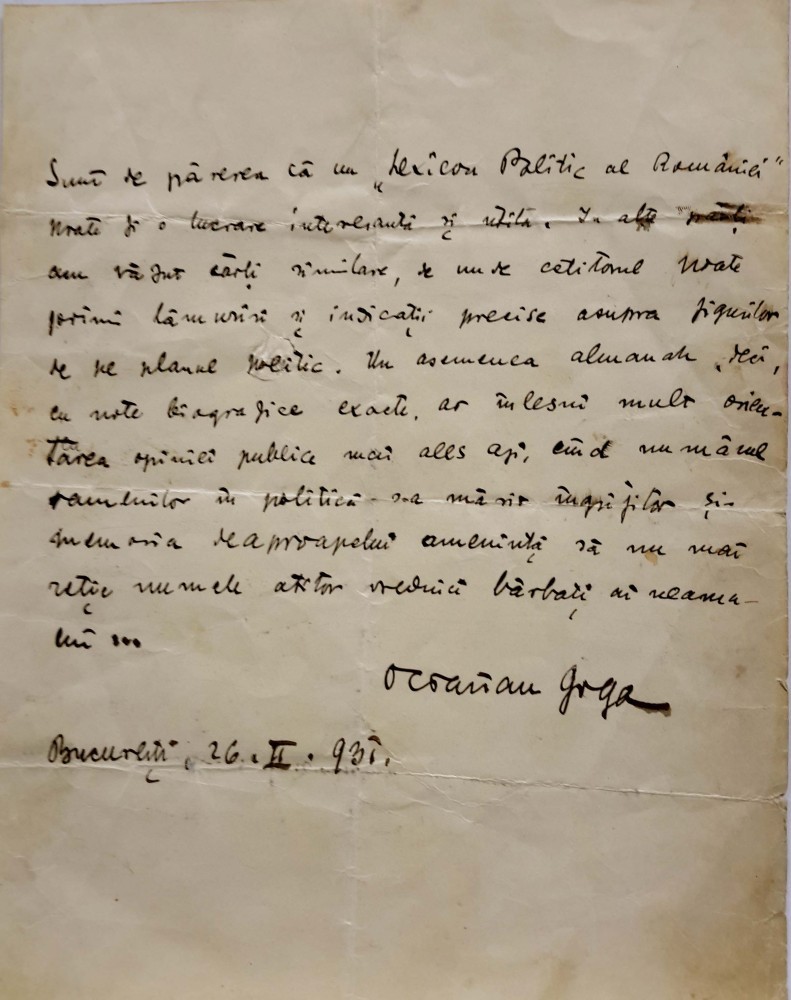 Sunt de părerea că un „Lexicon Politic al României"
poate fi o lucrare interesantă și utilă. In alte părți
am văzut cărți similare, de unde cetitorul poate
primi lămuriri și indicații precise asupra figurilor
de pe planul politic. Un asemenea almanah deci,
cu note biografice exacte, ar înlesni mult orien-
tarea opiniei publice mai ales azi, cînd numărul
oamenilor în politică s-a mărit îngrijitor și
memoria deaproapelui amenință să nu mai
reție numele atîtor vrednici bărbați ai neamu-
lui ...
Octavian Goga
București, 26. II. 931.